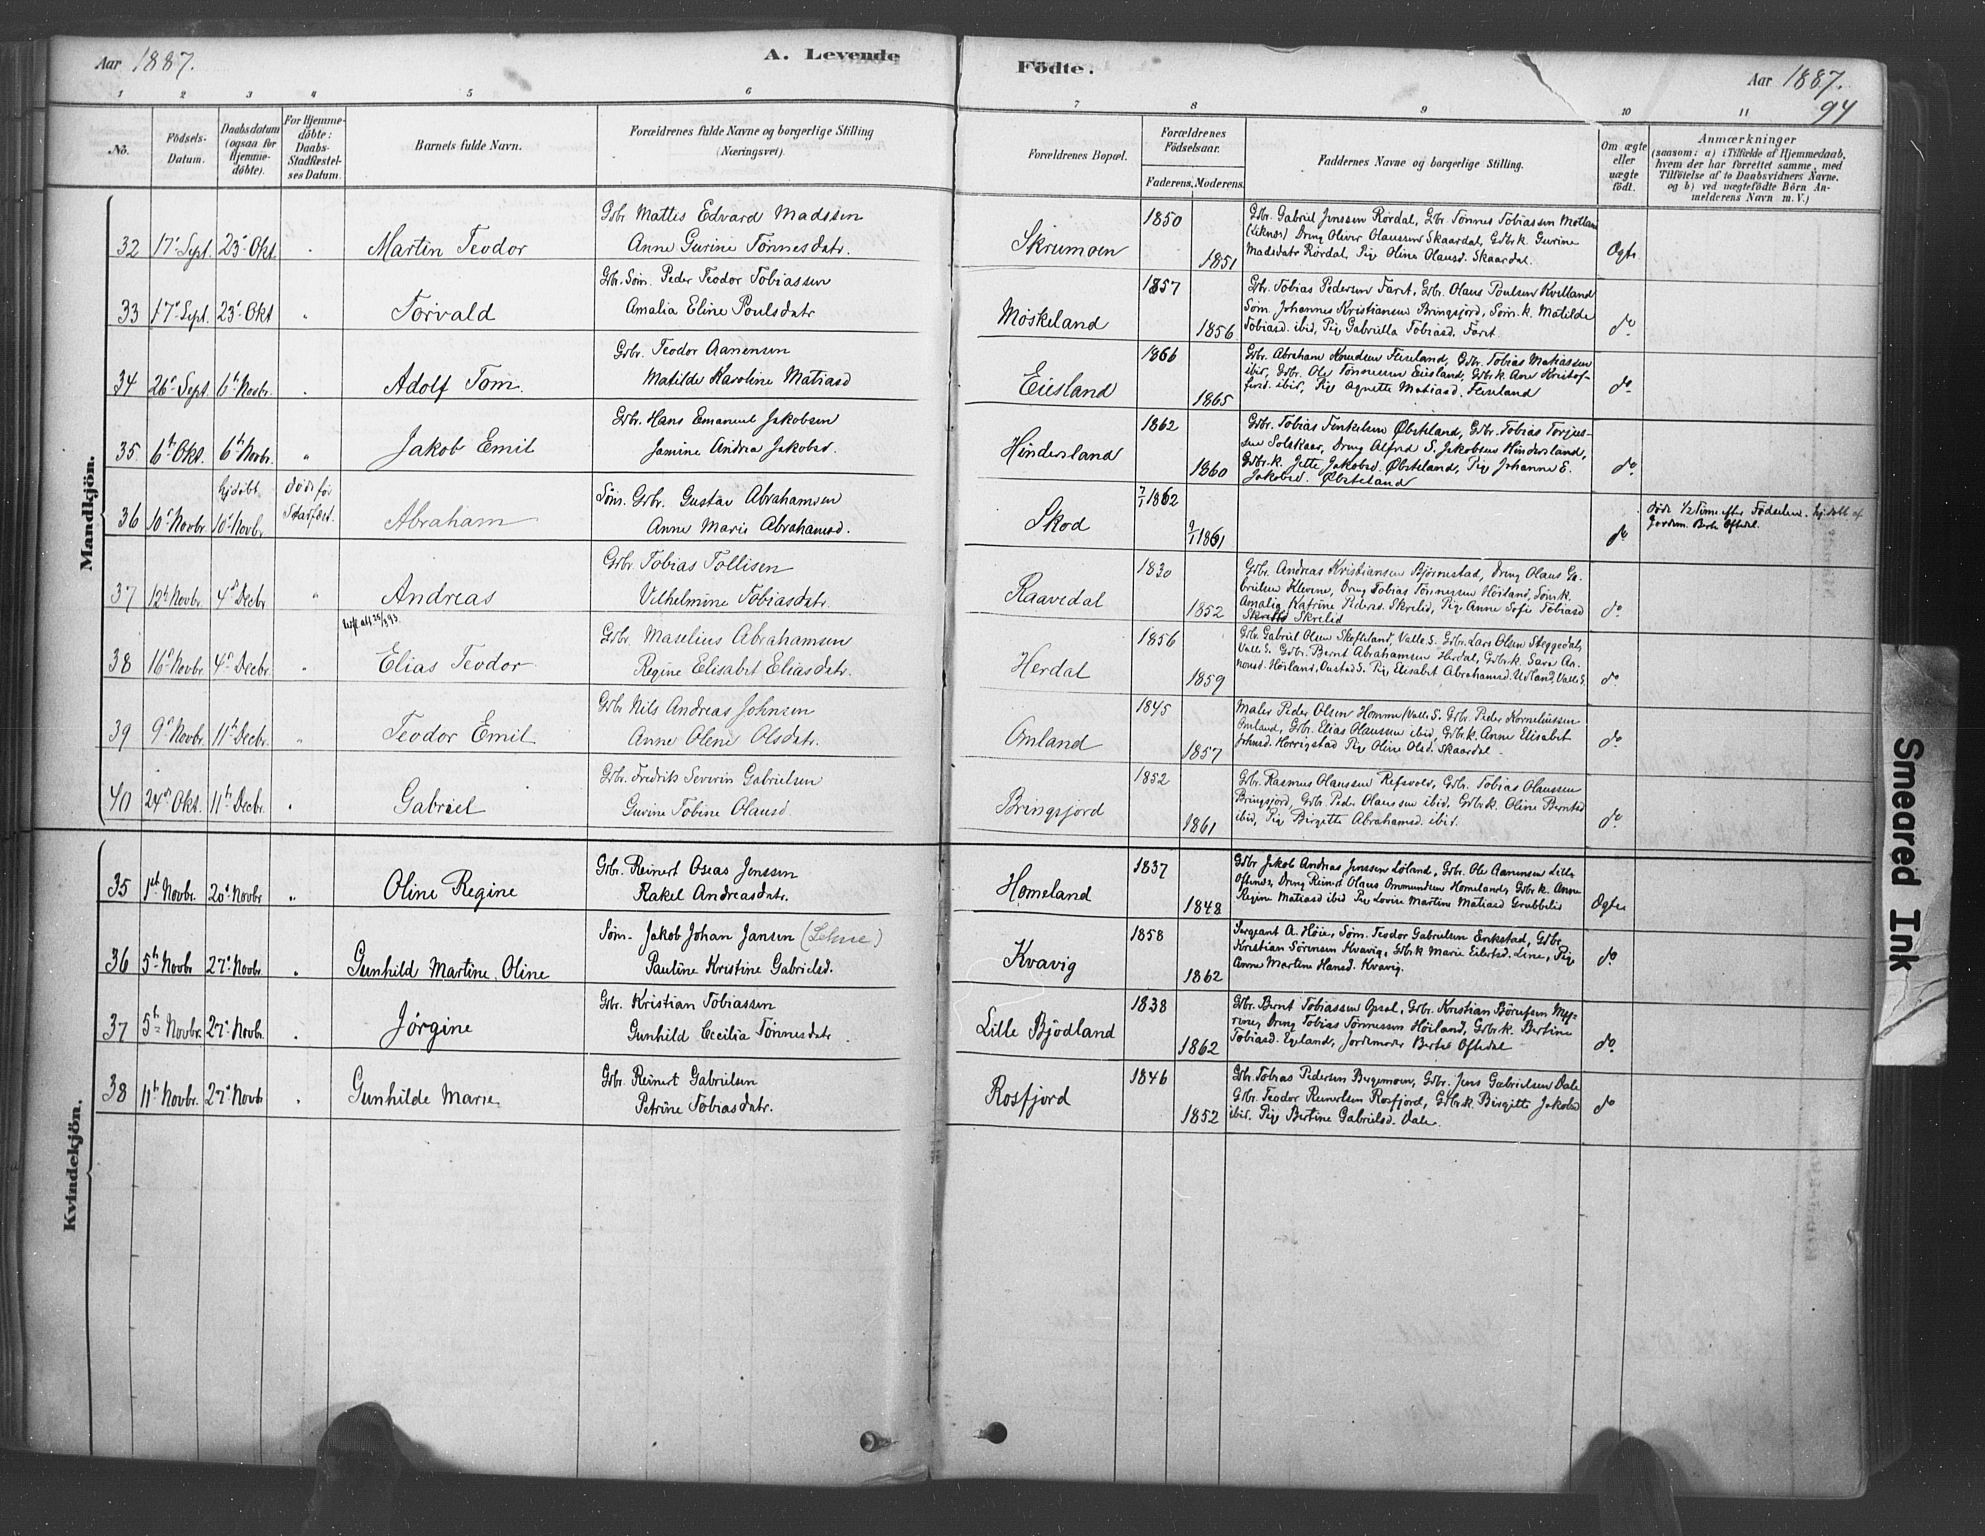 Aar 1887.
A. Levende
Födte.
Aar 1887.
94
1 2 3 4 5 6 7 8 9 10 11
No.
Födsels-Datum.
Daabsdatum (ogsaa for Hjemme-döbte).
For Hjemme-döbte: Daabs-Stadfæstel-ses Datum.
Barnets fulde Navn.
Forældrenes fulde Navne og borgerlige Stilling (Næringsvei).
Forældrenes Bopæl.
Forældrenes Födselsaar.
Faderens. Moderens.
Faddernes Navne og borgerlige Stilling.
Om ægte eller uægte födt.
Anmærkninger
(saasom: a) i Tilfælde af Hjemmedaab,
hvem der har forrettet samme, med
Tilföielse af to Daabsvidners Navne.
og b) ved uægtefödte Börn An-
melderens Navn m. V.)
Mandkjön.
32 17' Sept. 23' Okt. " Martin Teodor
Gbr. Mattes Edvard Madssen
Anne Gurine Tönnesdatr.
Skrumoen 1850 1851
Gbr. Gabriel Jenssen Rördal, Gbr. Tönnes Tobiassen Motland
(Liknes) Dreng Oliver Olaussen Skaardal, Gbr.k. Gurine
Madsdatr Rördal, Pige Oline Olausd. Skaardal.
Ægte
33 17' Sept. 23' Okt " Torvald
Gbr. Söm. Peder Teodor Tobiassen
Amalia Eline Poulsdatr
Möskeland 1857 1856
Gbr. Tobias Pedersen Faret, Gbr. Olaus Poulsen Kvelland
Söm. Johannes Kristiansen Bringsfjord, Söm.k. Matilde
Tobiasd. ibid, Pige Gabriella Tobiasd. Faret.
do.
34 26' Sept. 6' Novbr. " Adolf Tom.
Gbr. Teodor Aanensen
Matilde Karoline Matiasd
Eiesland 1866 1865
Gbr. Abraham Knudsen Fleseland, Gbr. Tobias Matiassen
ibid, Gbr. Ole Tönnessen Eiesland, Gbr.k. Ane Kristof-
fersd. ibid, Pige Agnette Matiasd. Fleseland
do.
35. 6' Okt. 6' Novbr. " Jakob Emil
Gbr. Hans Emanuel Jakobsen
Jamine Andrea Jakobsd.
Hindersland 1862 1860
Gbr. Tobias Tinkelsen Öbsteland, Gbr. Tobias Torjus-
sen Solskaar, Dreng Alfred S. Jakobsen Hindersland,
Gbr.k. Jette Jakobsd. Öbsteland, Pige Johanne E.
Jakobsd. Öbsteland
do.
36 10' Novbr. hjdöbt 10' Novbr. Död för Stadfæst. Abraham
Söm. Gbr. Gustav Abrahamsen
Anne Marie Abrahamsd.
Skod 7/1 1862 9/1 1861
do
Döde 1/2 Time efter Födselen. hjdöbt af
Jordem. Berte Oftedal.
37 12' Novbr 4' Decbr " Andreas
Gbr. Tobias Tollisen
Vilhelmine Tobiasdatr.
Raavedal 1830 1852
Gbr. Andreas Kristiansen Björnestad, Dreng Olaus Ga-
brielsen Klevene, Dreng Tobias Tönnessen Höiland, Söm.k.
Amalia Katrine Pedersd. Skrelid, Pige Anne Sofie Tobiasd
Skrelid
do.
38 16' Novbr. 4' Decbr. " Elias Teodor
Gbr. Maselius Abrahamsen
Regine Elisabet Eliasdatr.
Herdal 1856 1859
Gbr. Gabriel Olsen Skofteland, Valle S. Gbr. Lars Olsen Steggedal,
Valle S. Gbr. Bernt Abrahamsen Herdal, Gbr.k. Sara An-
Höiland, Pige Elisabet Abrahamsd. Udland, Valle S.
do.
39 9' Novbr 11' Decbr. " Teodor Emil
Gbr. Nils Andreas Johnsen
Anne Olene Olsdatr.
Omland 1845 1857
Maler Peder Olsen Homme, Valle S. Gbr. Peder Korneliussen
Omland, Gbr. Elias Olaussen ibid, Gbr.k. Anne Elisabet
Johnsd. Herrigstad Pige Oline Olsd. Skaardal.
do.
40 24' Okt. 11' Decbr. " Gabriel
Gbr. Fredrik Severin Gabrielsen
Gurine Tobine Olausd.
Bringsfjord 1852 1861
Gbr. Rasmus Olaussen Refsvold, Gbr. Tobias Olaussen
Bringsfjord, Gbr. Peder Olaussen ibid. Gbr.k. Oline Berntsd
ibid, Pige Birgitte Abrahamsd. ibid.
do.
Kvindekjön.
35 1st Novbr. 20' Novbr " Oline Regine
Gbr. Reinert Oseas Jenssen
Rakel Andreasdatr.
Homeland 1837 1848
Gbr. Jakob Andreas Jenssen Löland, Gbr. Ole Aanensen Lille
Dreng Reinert Olaus Ommundsen Homeland, Gbr.k. Anne
Regine Matiasd ibid Pige Lovise Martine Matiasd Grubbelid
Ægte
36 5' Novbr 27' Novbr. " Gunhild Martine Oline
Söm. Jakob Johan Jansen (Lehne)
Pauline Kristine Gabrielsd.
Kvavig 1858 1862
Sergeant A. Höie, Söm. Teodor Gabrielsen Enkstad, Gbr.
Kristian Sörensen Kvavig, Gbr.k Marie Eilertsd. Lene, Pige
Anne Martine Hansd. Kvavig.
do.
37 5' Novbr. 27' Novbr. " Jörgine
Gbr. Kristian Tobiassen
Gunhild Cecilia Tönnesdatr
Lille Bjödland 1838 1862
Gbr. Bernt Tobiassen Opsal, Gbr. Kristian Börufsen My-
rene, Dreng Tobias Tönnessen Höiland, Gbr.k. Bertine
Tobiasd. Egeland, Jordemoder Berte Oftedal
do.
38 11' Novbr. 27' Novb " Gunhilde Marie
Gbr. Reinert Gabrielsen
Petrine Tobiasdatr.
Rosfjord 1846 1852
Gbr. Tobias Pedersen Bergemoen, Gbr. Jens Gabrielsen Dale
Gbr. Teodor Reinertsen Rosfjord, Gbr.k. Birgitte Jakobsd
ibid. Pige Bertine Gabrielsd. Dale.
do
Smeared Ink